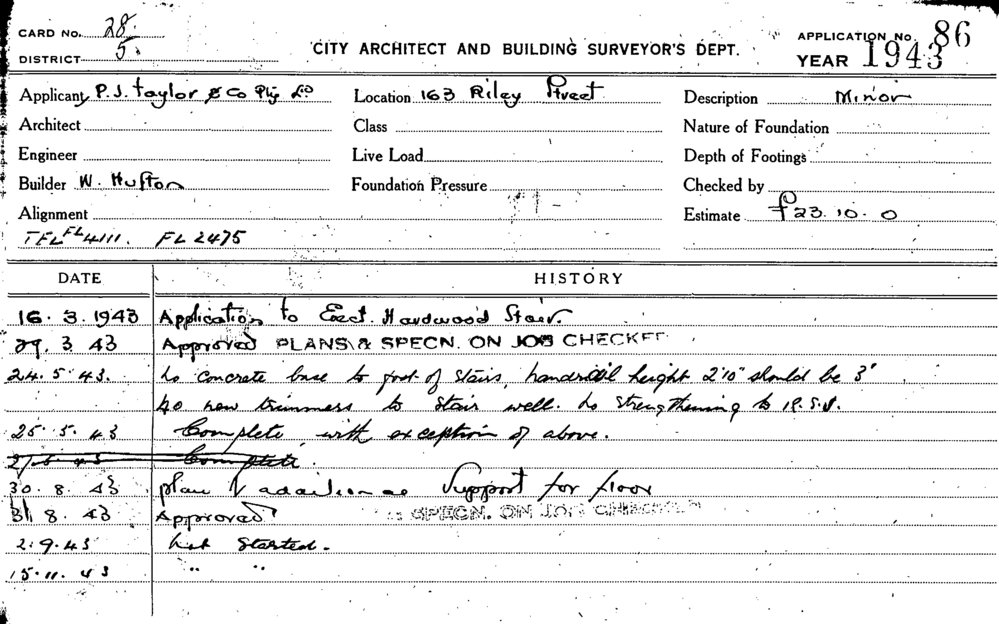 CARD No. 28
DISTRICT 5
CITY ARCHITECT AND BUILDING SURVEYOR'S DEPT.
APPLICATION No. 86
YEAR 1943
Applicant P. J. Taylor & Co Pty Ld
Location 163 Riley Street
Description Minor
Architect
Class
Nature of Foundation
Engineer
Live Load
Depth of Footings
Builder W. Hufton
Foundation Pressure
Checked by
Alignment
Estimate £23.10.0
FL 4111. FL 2475
DATE HISTORY
16.3.1943 Application to Erect Hardwood Stair.
29.3.43 Approved PLANS & SPECN. ON JOB CHECKED
24.5.43. No concrete base to foot of stairs, handrail height 2'10" should be 3'
No new trimmers to stair well. No strengthening to R.S.J.
25.5.43 Complete with exception of above.
Complete
30.8.43 plan additional Support for floor
31.8.43 Approved SPECN. ON JOB CHECKED
2.9.43 Not started.
15.11.43 " "